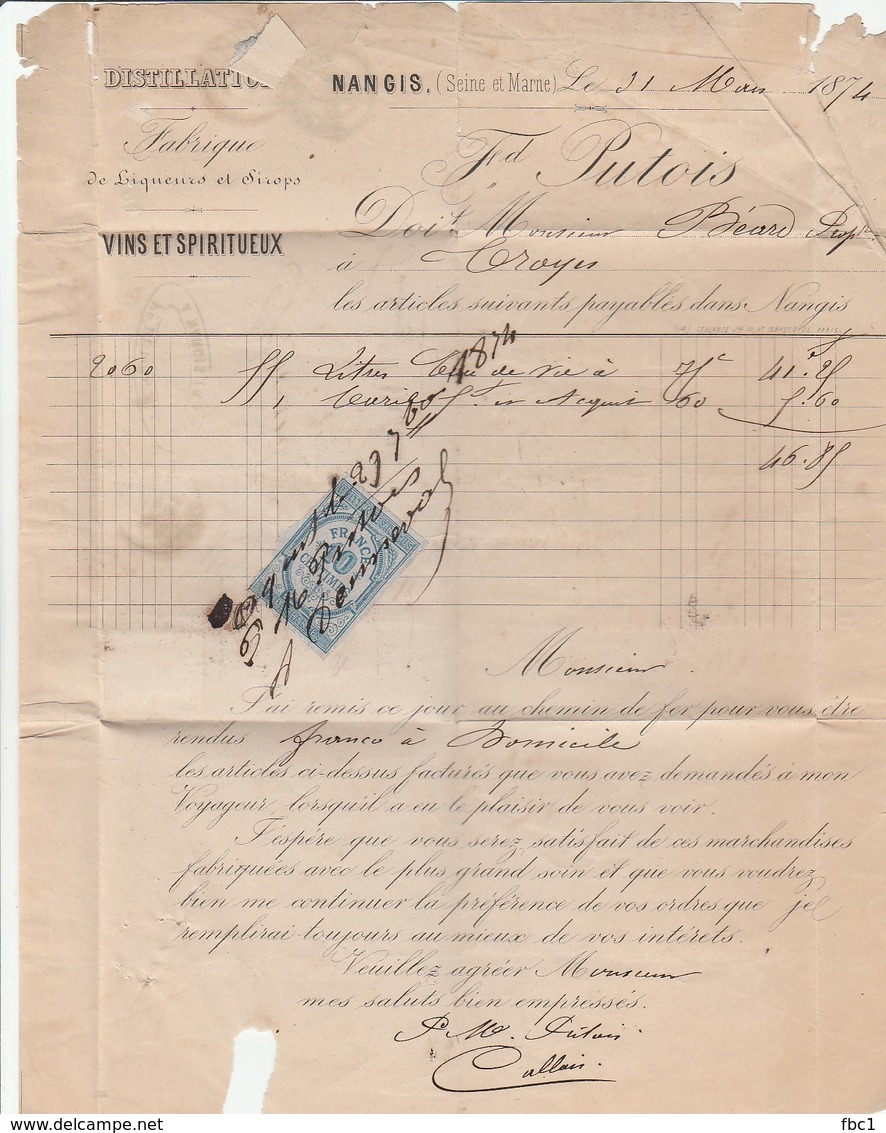 DISTILLATION
NANGIS, (Seine et Marne) Le 31 Mars 1874
Fabrique
de Liqueurs et Sirops
Fd Putois
VINS ET SPIRITUEUX
Doit Monsieur Béard Proptre
à Troyes
les articles suivants payables dans Nangis
2060 55 Litres Eau de Vie à 75c 41f.25
1 Baril et Acquit 5.60
46.85
FRANCE
10
CENTIMES
1874
Putois
Monsieur
J'ai remis ce jour au chemin de fer pour vous être
rendus franco à Domicile
les articles ci-dessus facturés que vous avez demandés à mon
Voyageur, lorsqu'il a eu le plaisir de vous voir.
J'éspére que vous serez satisfait de ces marchandises
fabriquées avec le plus grand soin et que vous voudrez
bien me continuer la préférence de vos ordres que je
remplirai toujours au mieux de vos intérets.
Veuillez agréer Monsieur
mes saluts bien empressés.
P. Mr. Putois
Callais.
fbc1